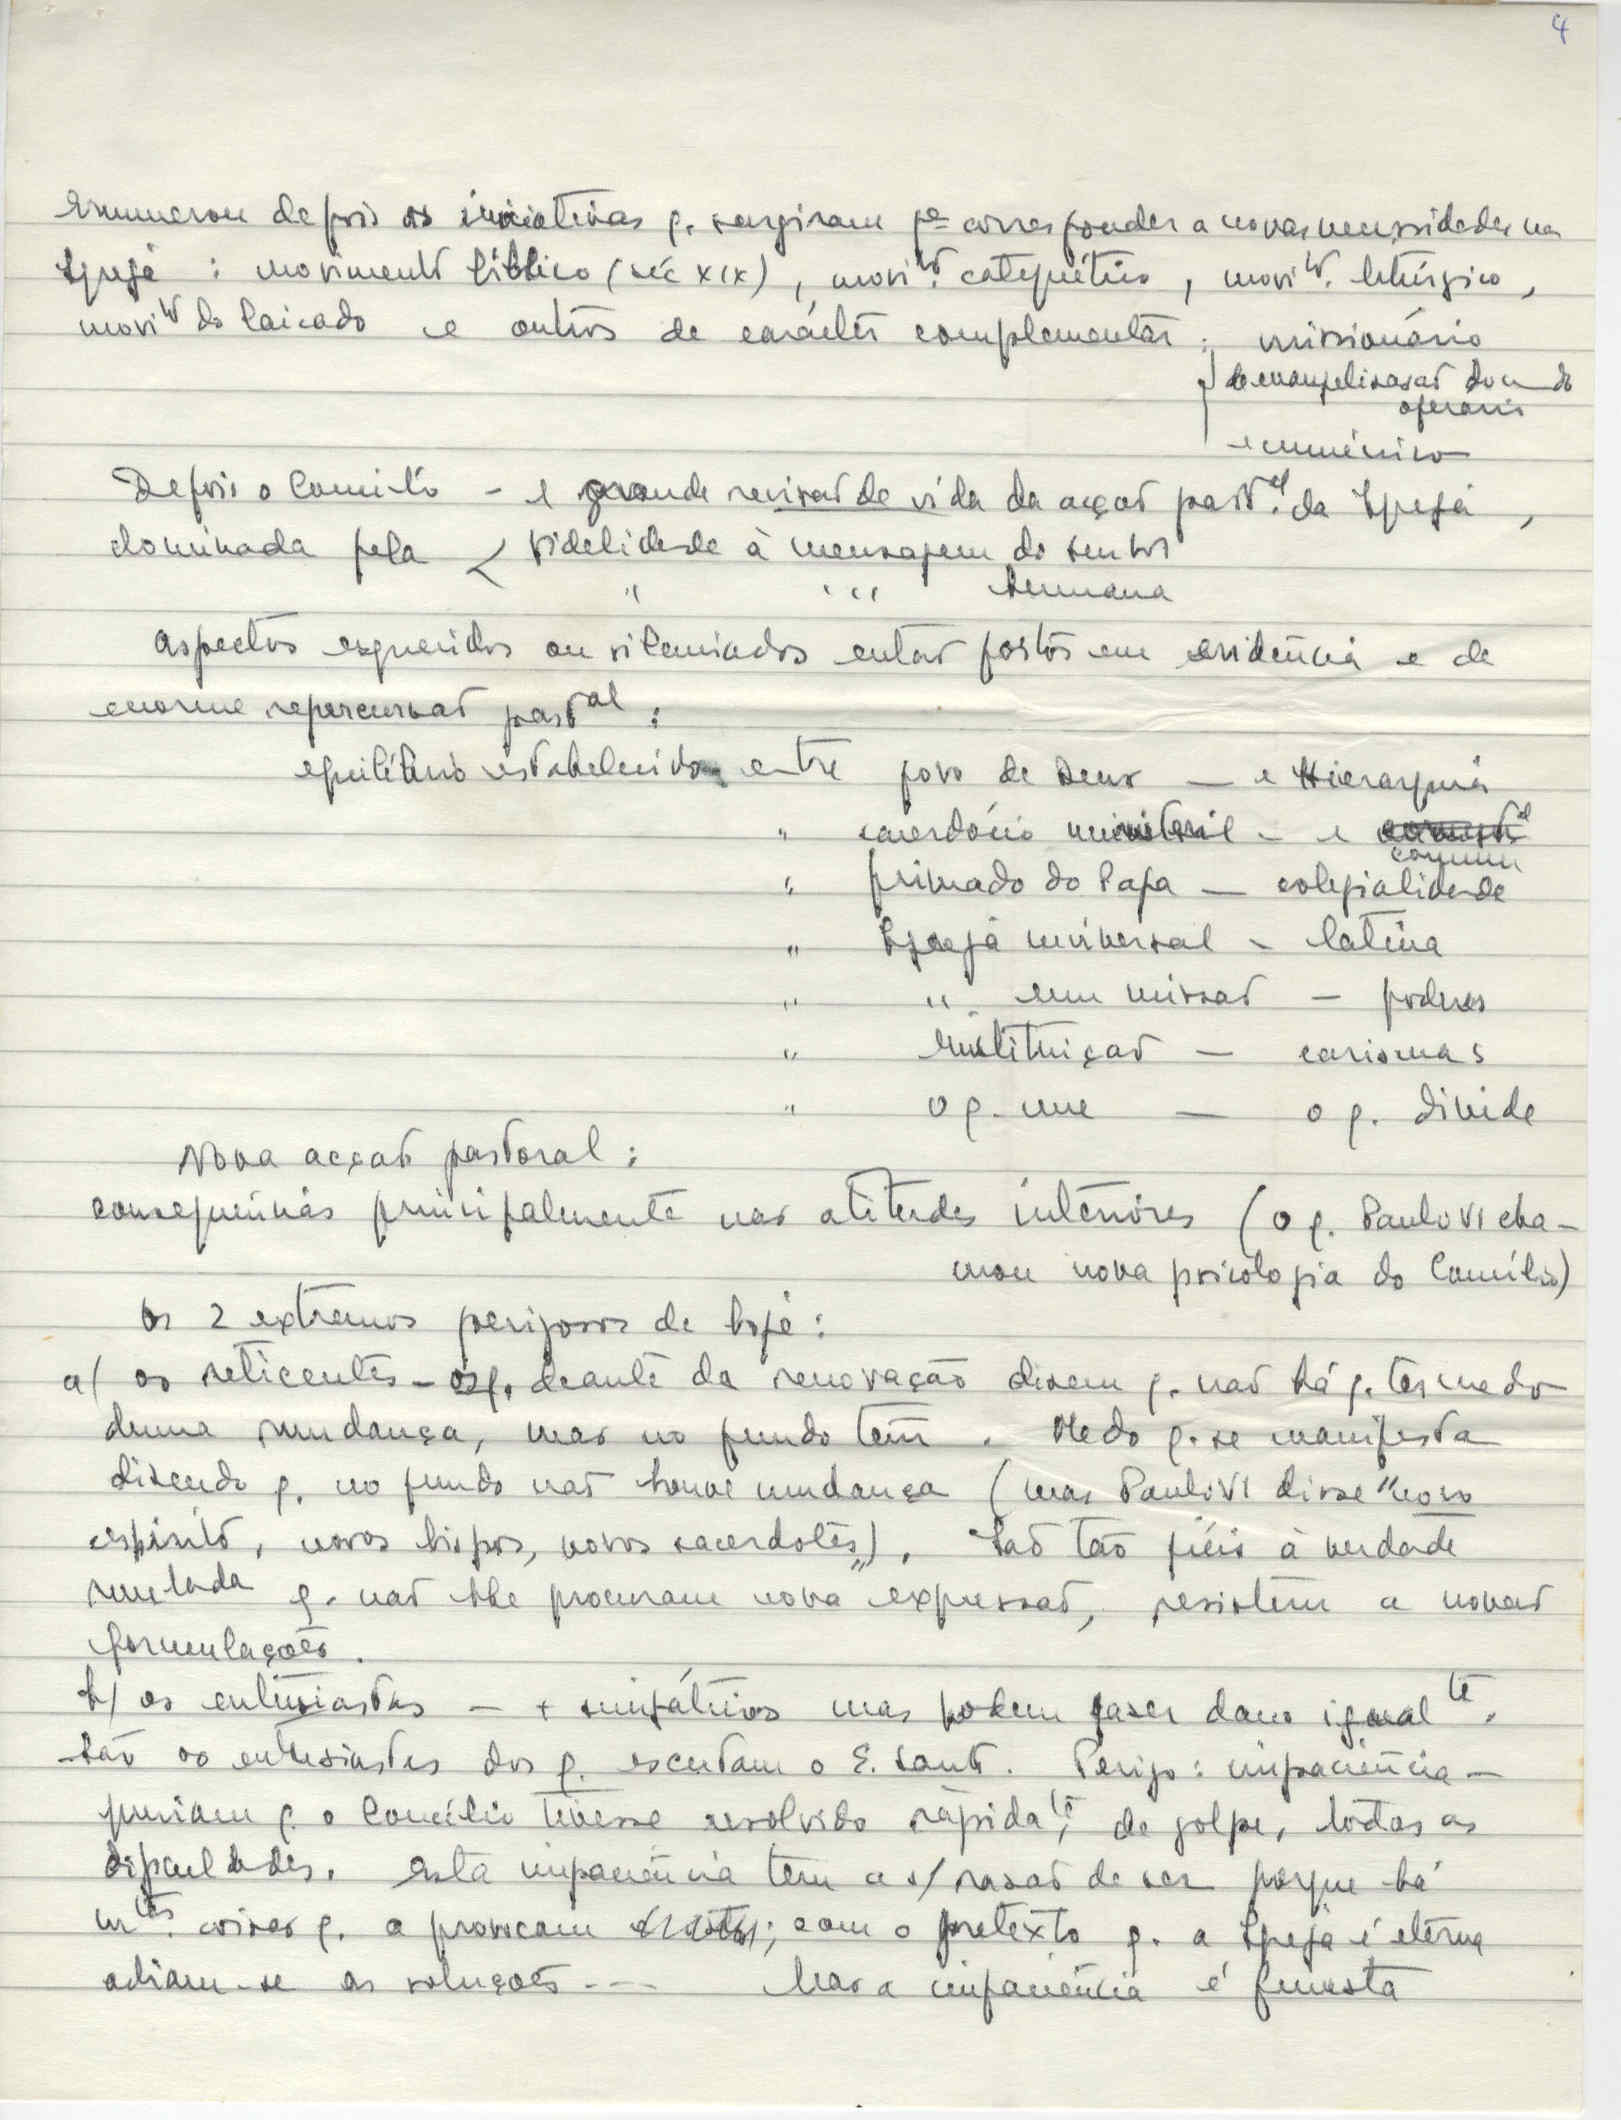 4
Enumerou depois as iniciativas q. surgiram pª corresponder a novas necessidades na
Igreja : movimento bíblico (séc XIX), movitº. catequético, movitº. litúrgico,
movitº do laicado e outros de carácter complementar : missionário
de evangelização do mdo
operário
ecuménico
Depois o Concílio - e grande revisão de vida da acção past.al da Igreja,
dominada pela < fidelidade à mensagem do senhor
" " " humana
Aspectos esquecidos ou silenciados então postos em evidência e de
enorme repercussão pastal :
equilíbrio estabelecido entre povo de Deus — e Hierarquia
" sacerdócio ministerial - e
comum
" primado do Papa — colegialidade
" Igreja universal - latina
" " em missão - poderes
" instituição — carismas
" o q. une — o q. divide
Nova acção pastoral :
consequências principalmente nas atitudes interiores (o q. Paulo VI cha-
mou nova psicologia do Concílio)
Os 2 extremos perigosos de hoje :
a/ os reticentes - os q. deante da renovação dizem q. não há q. ter medo
duma mudança, mas no fundo têm. Medo q. se manifesta
dizendo q. no fundo não houve mudança (mas Paulo VI disse "novo
espírito, novos bispos, novos sacerdotes"). São tão fiéis à verdade
revelada q. não lhe procuram nova expressão, resistem a novas
formulações.
b/ os entusiastas — + simpáticos mas podem fazer dano igualte.
São os entusiastas dos q. escutam o E. Santo. Perigo : impaciência —
queriam q. o Concílio tivesse resolvido ràpidate, de golpe, todas as
dificuldades. Esta impaciência tem a s/ razão de ser porque há
mtas. coisas q. a provocam ; com o pretexto q. a Igreja é eterna
adiam-se as soluções --- Mas a impaciência é funesta